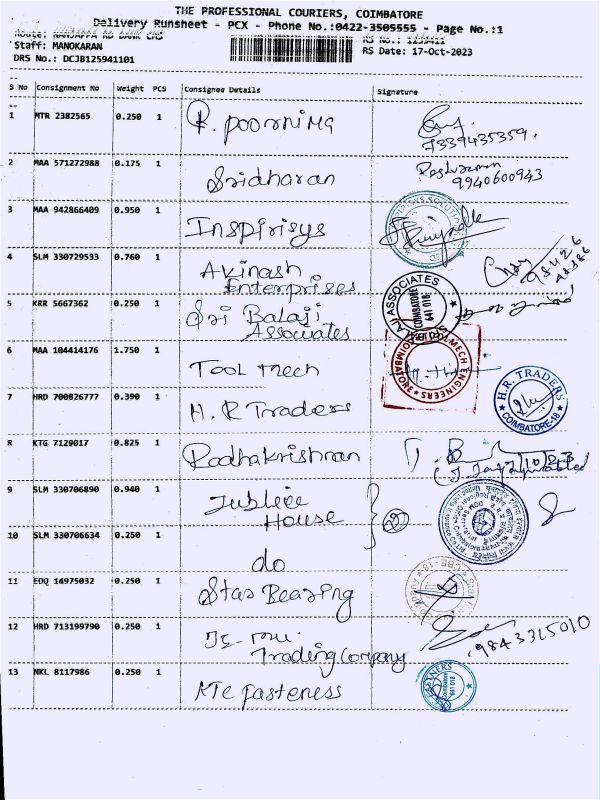 THE PROFESSIONAL COURIERS, COIMBATORE
Delivery Runsheet - PCX - Phone No.:0422-3505555 - Page No.:1
Route: NANJAPPA RD BANK CHQ
Staff: MANOKARAN
DRS No.: DCJB125941101
RS No.: 1259411
RS Date: 17-Oct-2023
S No Consignment No Weight PCS Consignee Details Signature
1 MTR 2382565 0.250 1 R. POORNIMA
7339435359.
2 MAA 571272988 0.175 1 Sridharan
9940600943
3 MAA 942866409 0.950 1 Inspirisys
4 SLM 330729533 0.760 1 Avinash
Enterprises
5 KRR 5667362 0.250 1 Sri Balaji
Associates
ASSOCIATES
COIMBATORE
641 018
6 MAA 104414176 1.750 1 Tool mech
MECH ENGINEERS
COIMBATORE
7 HRD 700826777 0.390 1 H.R Traders
H.R. TRADERS
COIMBATORE-18
8 KTG 7129017 0.825 1 Radhakrishnan
9 SLM 330706890 0.940 1 Jubliee
House
2
10 SLM 330706634 0.250 1 do
11 EDQ 14975032 0.250 1 Star Bearing
12 HRD 713199790 0.250 1
Trading Company
9843315010
13 NKL 8117986 0.250 1 KTC fasteness
641 018